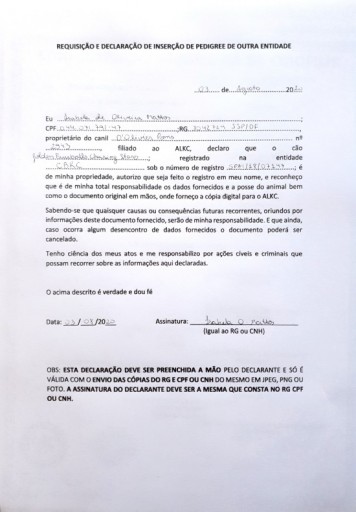 REQUISIÇÃO E DECLARAÇÃO DE INSERÇÃO DE PEDIGREE DE OUTRA ENTIDADE
03 de Agosto 2020
Eu Isabela de Oliveira Mattos
CPF RG SSP/DF,
proprietário do canil nº
, filiado ao ALKC, declaro que o cão
; registrado na entidade
CBKC sob o número de registro ; é
de minha propriedade, autorizo que seja feito o registro em meu nome, e reconheço
que é de minha total responsabilidade os dados fornecidos e a posse do animal bem
como o documento original em mãos, onde forneço a cópia digital para o ALKC.
Sabendo-se que quaisquer causas ou consequências futuras recorrentes, oriundos por
informações deste documento fornecido, serão de minha responsabilidade. E que ainda,
caso ocorra algum desencontro de dados fornecidos o documento poderá ser
cancelado.
Tenho ciência dos meus atos e me responsabilizo por ações cíveis e criminais que
possam recorrer sobre as informações aqui declaradas.
O acima descrito é verdade e dou fé
Data: 03 / 08 /2020 Assinatura: Isabela O Mattos
(Igual ao RG ou CNH)
OBS: ESTA DECLARAÇÃO DEVE SER PREENCHIDA A MÃO PELO DECLARANTE E SÓ É
VÁLIDA COM O ENVIO DAS CÓPIAS DO RG E CPF OU CNH DO MESMO EM JPEG, PNG OU
FOTO. A ASSINATURA DO DECLARANTE DEVE SER A MESMA QUE CONSTA NO RG CPF
OU CNH.